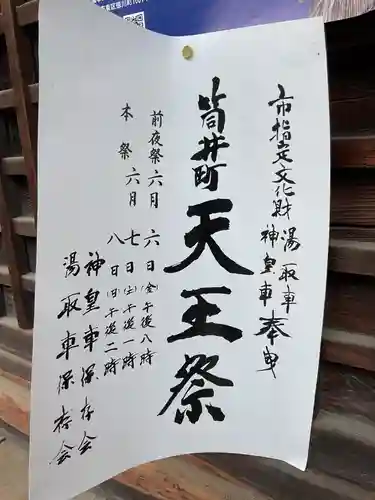 市指定文化財 湯取車
神皇車 奉曳
筒井町天王祭
前夜祭 六月 六日(金)午後八時
本祭 六月 七日(土)午後一時
八日(日)午後二時
神皇車保存会
湯取車保存会